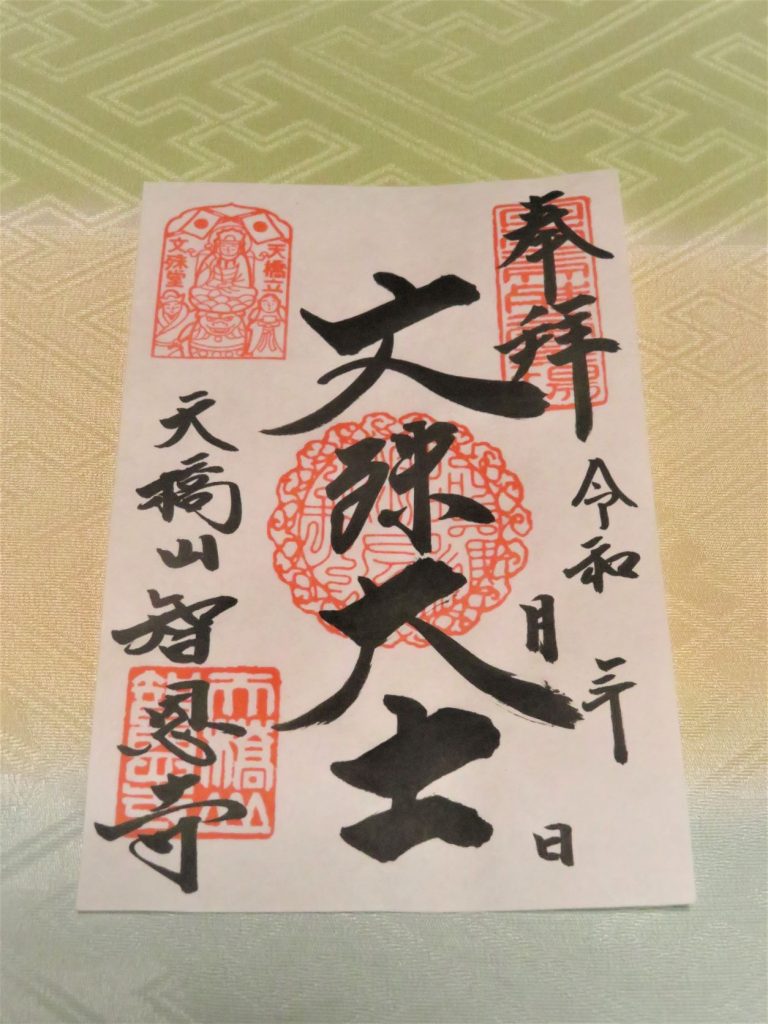 奉拝
令和 年
月 日
文殊大士
天橋立
文殊堂
天橋山智恩寺
天橋山
智恩寺